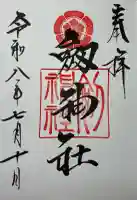 奉拝
劔神社
劔神社
令和八年七月十日